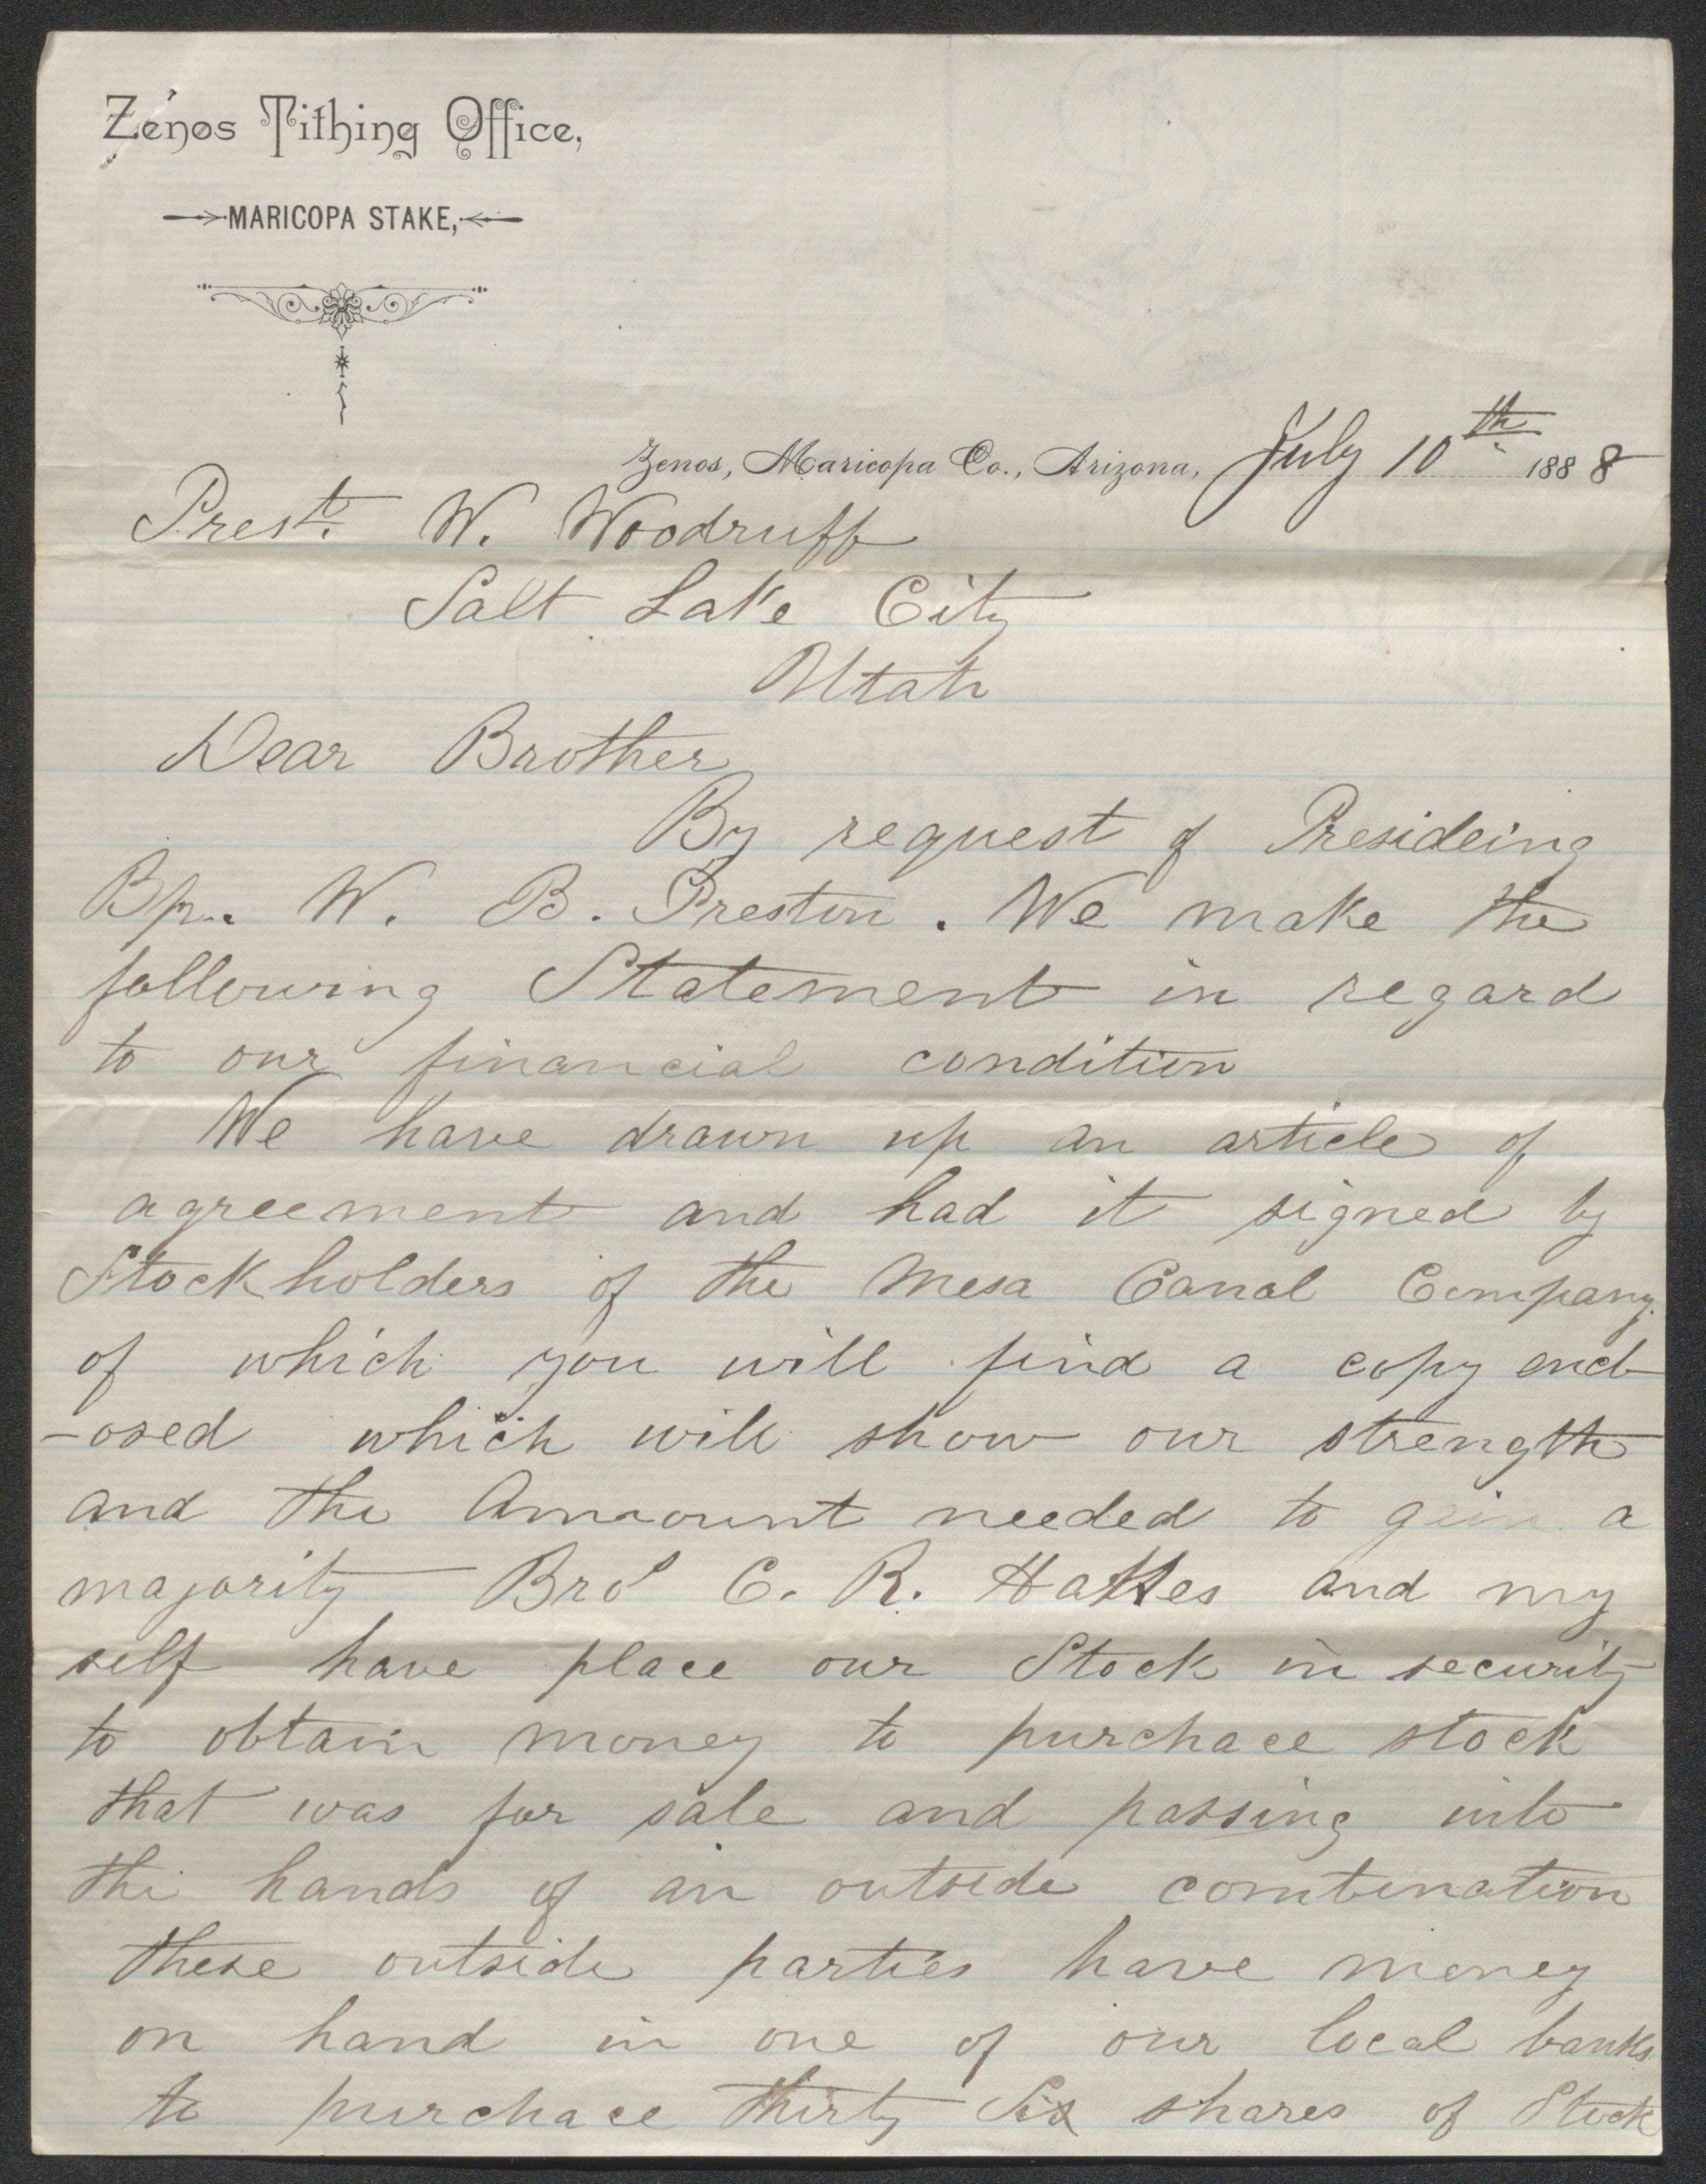 Zenos Tithing Office,
MARICOPA STAKE,
Zenos, Maricopa Co., Arizona, July 10th 1888
Prest. W. Woodruff
Salt Lake City
Utah
Dear Brother
By request of Presideing
Bp. W. B. Preston. We make the
following Statement in regard
to our financial condition
We have drawn up an article of
agreement and had it signed by
Stockholders of the Mesa Canal Company.
of which you will find a copy encl
-osed which will show our strength
and the Amount needed to gain a
majority Bro C. R. Hakes and my
self have place our Stock in security
to obtain money to purchace stock
that was for sale and passing into
the hands of an outside combination
these outside parties have money
on hand in one of our local banks
to purchace thirty Six shares of Stock